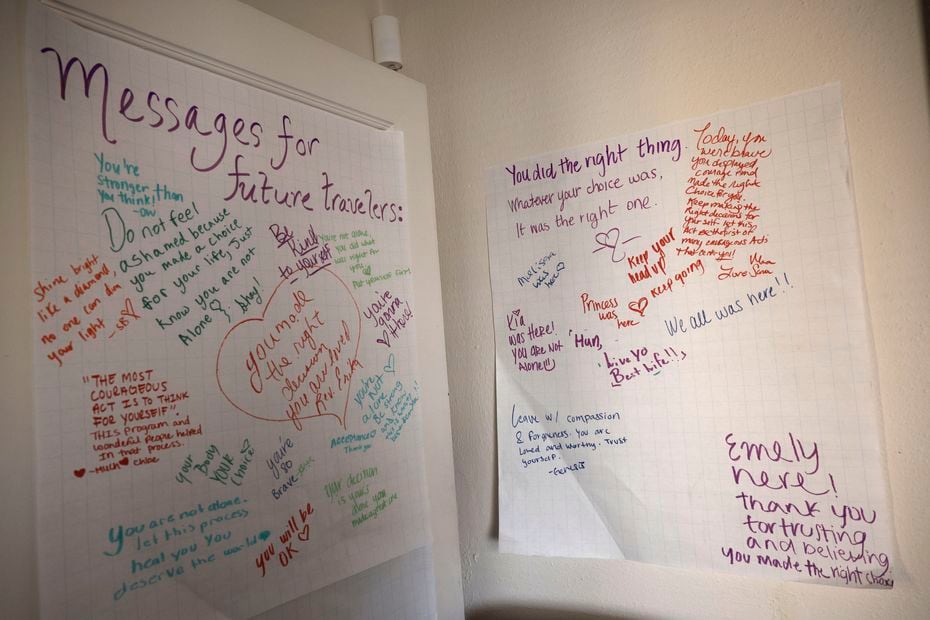 Messages for
future travelers:
You're
stronger than
you think!
Do not feel
ashamed because
you made a choice
for your life, Just
Know you are not
Alone
Be
Kind
to yourself
You're not alone,
you did what
was right
you
Put yourself first
Shine bright
like a diamond,
no one can dim
your light
you made
the right
decision
you are loved
Rev. Erika
you're
gonna
"THE MOST
COURAGEOUS
ACT IS TO THINK
FOR YOURSELF"
THIS Program and
wonderful People helped
In that process.
-Much ♥ Chloe
you're
Not
alone
Be strong
and know
Acceptance
Thank you
your
Body
YOUR
Choice
you're
so
Brave
Your decision
is yours
alone
You are not alone.
let this process
heal you You
deserve the world
you will be
OK ♡
You did the right thing.
Whatever your choice was,
It was the right one.
Today, you
were brave
you displayed
courage and
made the right
Choice for you.
Keep making the
Right decisions for
your self. let this
Act be the first of
many courageous Acts
Love
Keep your
head up
♡ Keep going
was
here
Princess
was
here
We all was here!!
Kia
was Here!
you are Not
Alone!!
Live Yo
Best Life!!
Leave w/ compassion
& Forgiveness. You are
Loved and worthy. Trust
yourself.
-Genesis
Emely
here!
Thank you
for trusting
and believing
you made the right